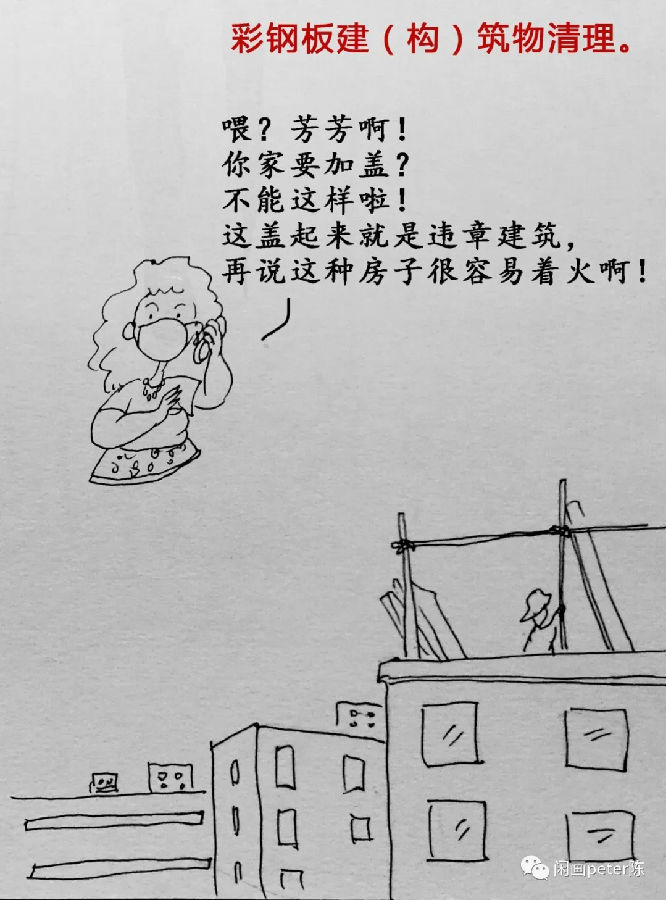 彩钢板建（构）筑物清理。
喂？芳芳啊！
你家要加盖？
不能这样啦！
这盖起来就是违章建筑，
再说这种房子很容易着火啊！
闲画peter陈